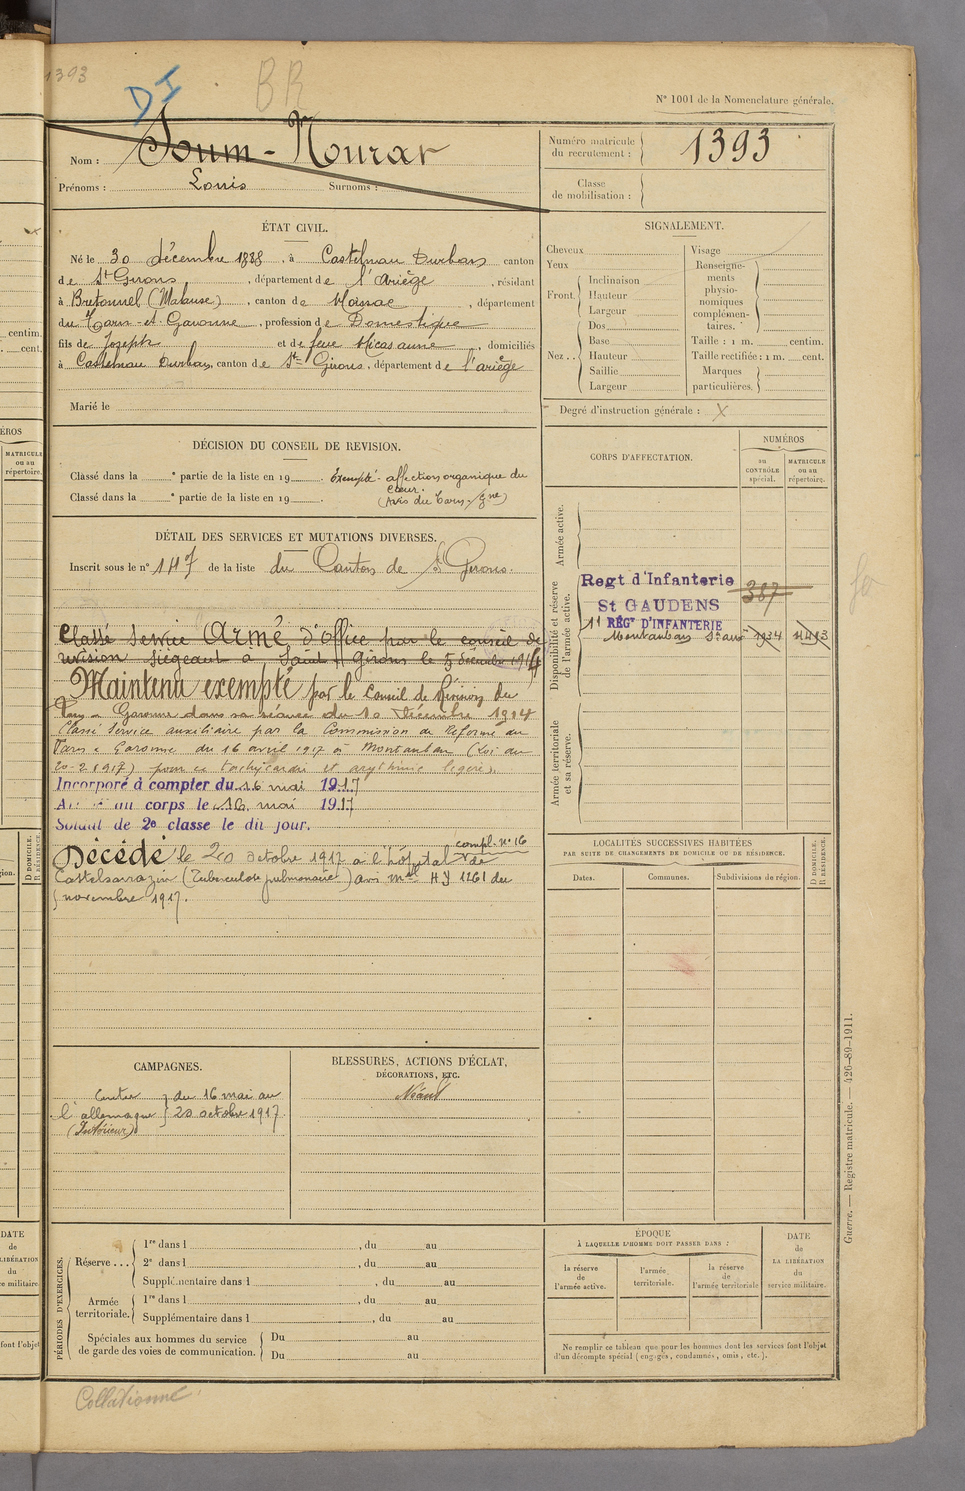 1393
DI
BR
N° 1001 de la Nomenclature générale.
Nom : Soum-Mourat
Prénoms : Louis Surnoms :
Numéro matricule du recrutement : 1393
Classe de mobilisation :
ÉTAT CIVIL.
Né le 30 décembre 1888, à Castelnau Durban canton
de St Girons, département de l'Ariège, résidant
à Bretounel (Malause), canton de Moissac, département
du Tarn-et-Garonne, profession de Domestique
fils de Joseph et de feue Micas anne, domiciliés
à Castelnau Durban, canton de St Girons, département de l'ariège
Marié le
SIGNALEMENT.
Cheveux
Yeux
Front. Inclinaison
Hauteur
Largeur
Nez .. Dos
Base
Hauteur
Saillie
Largeur
Visage
Renseignements physionomiques complémentaires.
Taille : 1 m. centim.
Taille rectifiée : 1 m. cent.
Marques particulières.
Degré d'instruction générale : X
DÉCISION DU CONSEIL DE REVISION.
Classé dans la e partie de la liste en 19 Exempté - affection organique du
cœur.
Classé dans la e partie de la liste en 19 (Avis du Tarn-et-Gne)
DÉTAIL DES SERVICES ET MUTATIONS DIVERSES.
Inscrit sous le n° 147 de la liste du Canton de St Girons.
Classé Service Armé d'office par le conseil de
revision siégeant à Saint Girons le 5 décembre 1914
Maintenu exempté par le Conseil de Révision du
Tarn-et-Garonne dans sa séance du 10 Décembre 1914
Classé Service auxiliaire par la Commission de Réforme du
Tarn et Garonne du 16 avril 1917 à Montauban (Loi du
20-2-1917) pour tachycardie et arythmie légère.
Incorporé à compter du 16 mai 1917
au corps le 16 mai 1917
Soldat de 2e classe le dit jour.
Décédé le 20 octobre 1917 à l'hôpital compl. n° 16 de
Castelsarrazin (Tuberculose pulmonaire) avis mel HY 1261 du
5 novembre 1917.
CORPS D'AFFECTATION.
NUMÉROS
au CONTRÔLE spécial.
MATRICULE ou au répertoire.
Armée active.
Disponibilité et réserve de l'armée active.
Regt d'Infanterie
St GAUDENS
387
11 RÉGt D'INFANTERIE
Montauban
Armée territoriale et sa réserve.
LOCALITÉS SUCCESSIVES HABITÉES
PAR SUITE DE CHANGEMENTS DE DOMICILE OU DE RÉSIDENCE.
Dates. Communes. Subdivisions de région. D DOMICILE. R RÉSIDENCE.
CAMPAGNES.
Contre
l'allemagne
(Intérieur)
du 16 mai au
20 octobre 1917
BLESSURES, ACTIONS D'ÉCLAT,
DÉCORATIONS, ETC.
Néant
PÉRIODES D'EXERCICES.
Réserve ... 1re dans l , du au
2e dans l , du au
Supplémentaire dans l , du au
Armée territoriale. 1re dans l , du au
Supplémentaire dans l , du au
Spéciales aux hommes du service
de garde des voies de communication. Du au
Du au
ÉPOQUE
À LAQUELLE L'HOMME DOIT PASSER DANS :
la réserve de l'armée active.
l'armée territoriale.
la réserve de l'armée territoriale
DATE de LA LIBÉRATION du service militaire.
Ne remplir ce tableau que pour les hommes dont les services font l'objet
d'un décompte spécial (engagés, condamnés, omis, etc.).
Guerre. — Registre matricule. — 426-89-1911.
Collationné